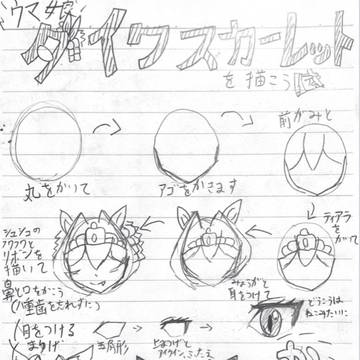 ウマ娘
ダイワスカーレット
を描こう
丸をかいて
アゴをかきます
前がみと
ティアラ
をかいて
みょうがと
耳をつけて
シュシュの
フワフワと
リボンを
描いて
鼻と口をかこう
(八重歯をわすれずに)
目をつける
まゆげ
五角形
上まつげと
アイライン、ふたえ
どうこうは
ねこみたいに